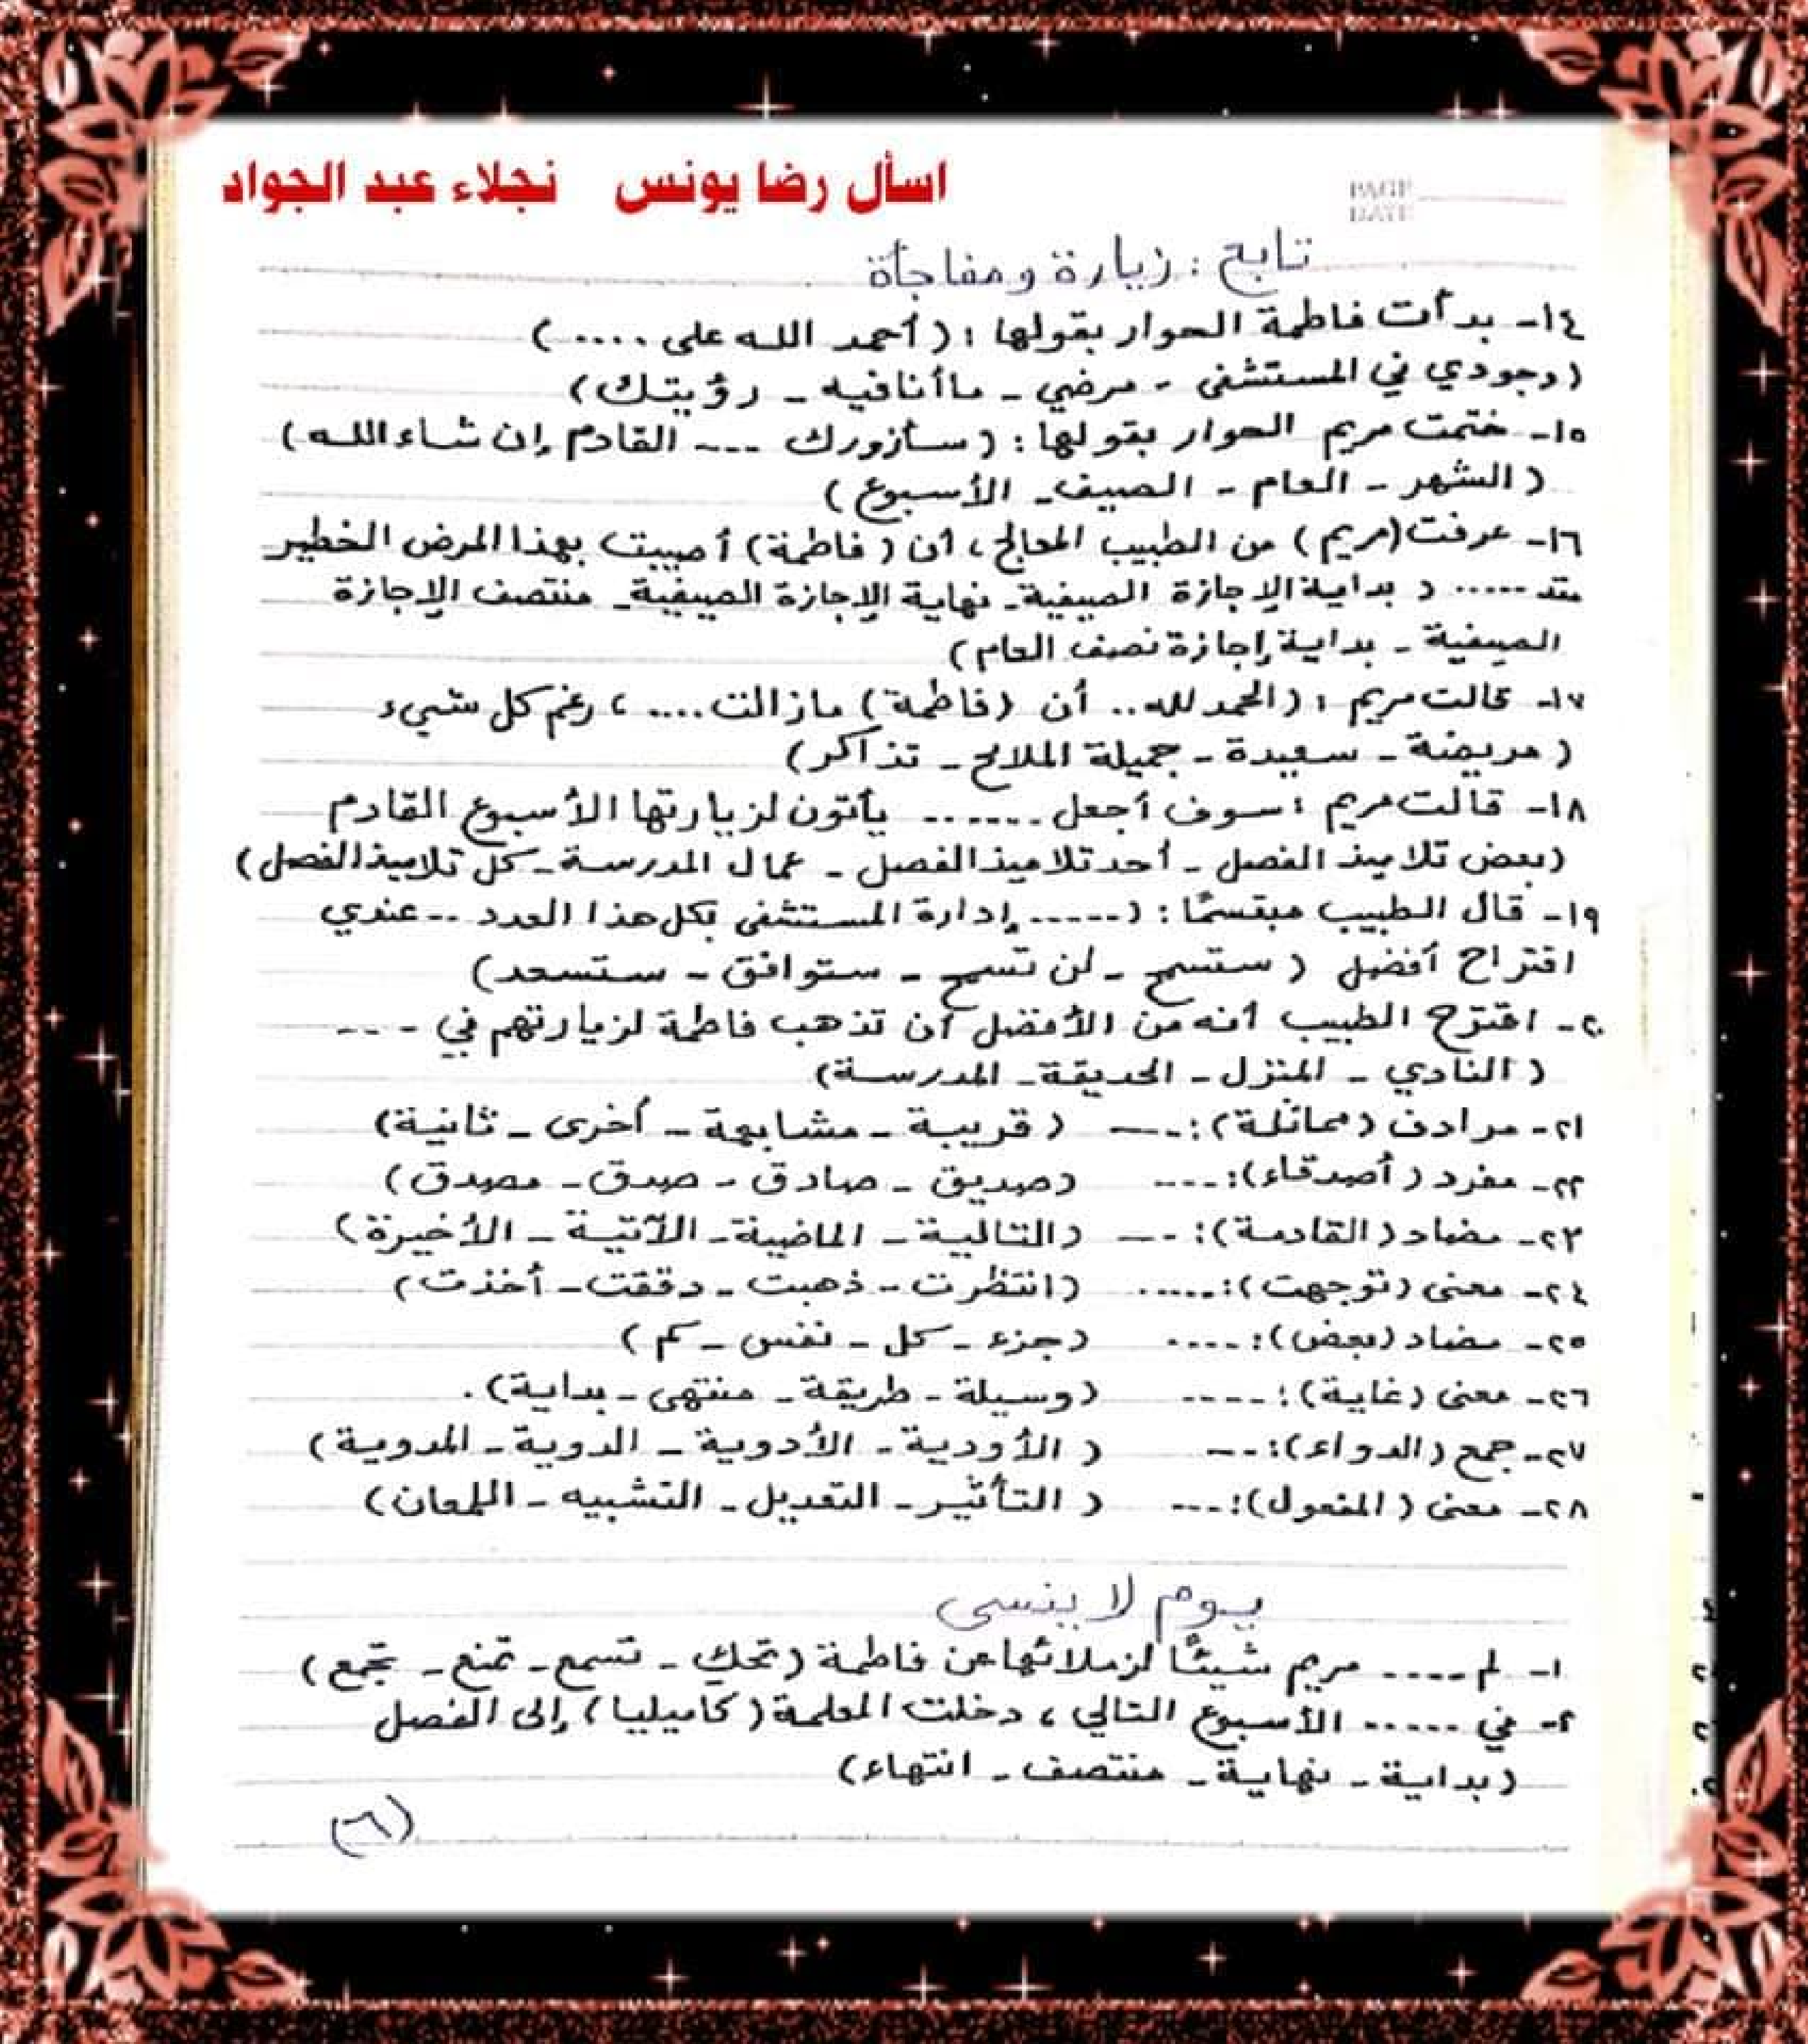 اسأل رضا يونس نجلاء عبد الجواد
PAGE
DATE
تابع : زيارة ومفاجأة
١٤- بدأت فاطمة الحوار بقولها : (أحمد الله على .....)
(وجودي في المستشفى - مرضي - ما أنا فيه - رؤيتك)
١٥- ختمت مريم الحوار بقولها : (سأزورك ---- القادم إن شاء الله)
(الشهر - العام - الصيف - الأسبوع)
١٦- عرفت (مريم) من الطبيب المعالج ، أن (فاطمة) أصيبت بهذا المرض الخطير
منذ ...... ( بداية الإجازة الصيفية - نهاية الإجازة الصيفية - منتصف الإجازة
الصيفية - بداية إجازة نصف العام)
١٧- قالت مريم : (الحمد لله .. أن (فاطمة) مازالت .... ، رغم كل شيء
(مريضة - سعيدة - جميلة الملامح - تذاكر)
١٨- قالت مريم : سوف أجعل ....... يأتون لزيارتها الأسبوع القادم
(بعض تلاميذ الفصل - أحد تلاميذ الفصل - عمال المدرسة - كل تلاميذ الفصل)
١٩- قال الطبيب مبتسمًا : (----- إدارة المستشفى بكل هذا العدد .. عندي
اقتراح أفضل (ستسمح - لن تسمح - ستوافق - ستسعد)
٢٠- اقترح الطبيب أنه من الأفضل أن تذهب فاطمة لزيارتهم في ----
(النادي - المنزل - الحديقة - المدرسة)
٢١- مرادف (مماثلة) : ---- (قريبة - مشابهة - أخرى - ثانية)
٢٢- مفرد (أصدقاء) : ---- (صديق - صادق - صدق - مصدق)
٢٣- مضاد (القادمة) : --- (التالية - الماضية - الآتية - الأخيرة)
٢٤- معنى (توجهت) : ...... (انتظرت - ذهبت - دققت - أخذت)
٢٥- مضاد (بعض) : ---- (جزء - كل - نفس - كم)
٢٦- معنى (غاية) : ---- (وسيلة - طريقة - منتهى - بداية).
٢٧- جمع (الدواء) : --- (الأودية - الأدوية - الدوية - المدوية)
٢٨- معنى (المفعول) : --- (التأثير - التعديل - التشبيه - اللمعان)
يوم لا ينسى
١- لم ---- مريم شيئًا لزملائها عن فاطمة (تحك - تسمع - تمنع - تجمع)
٢- في ...... الأسبوع التالي ، دخلت المعلمة (كاميليا) إلى الفصل
(بداية - نهاية - منتصف - انتهاء)
(٦)